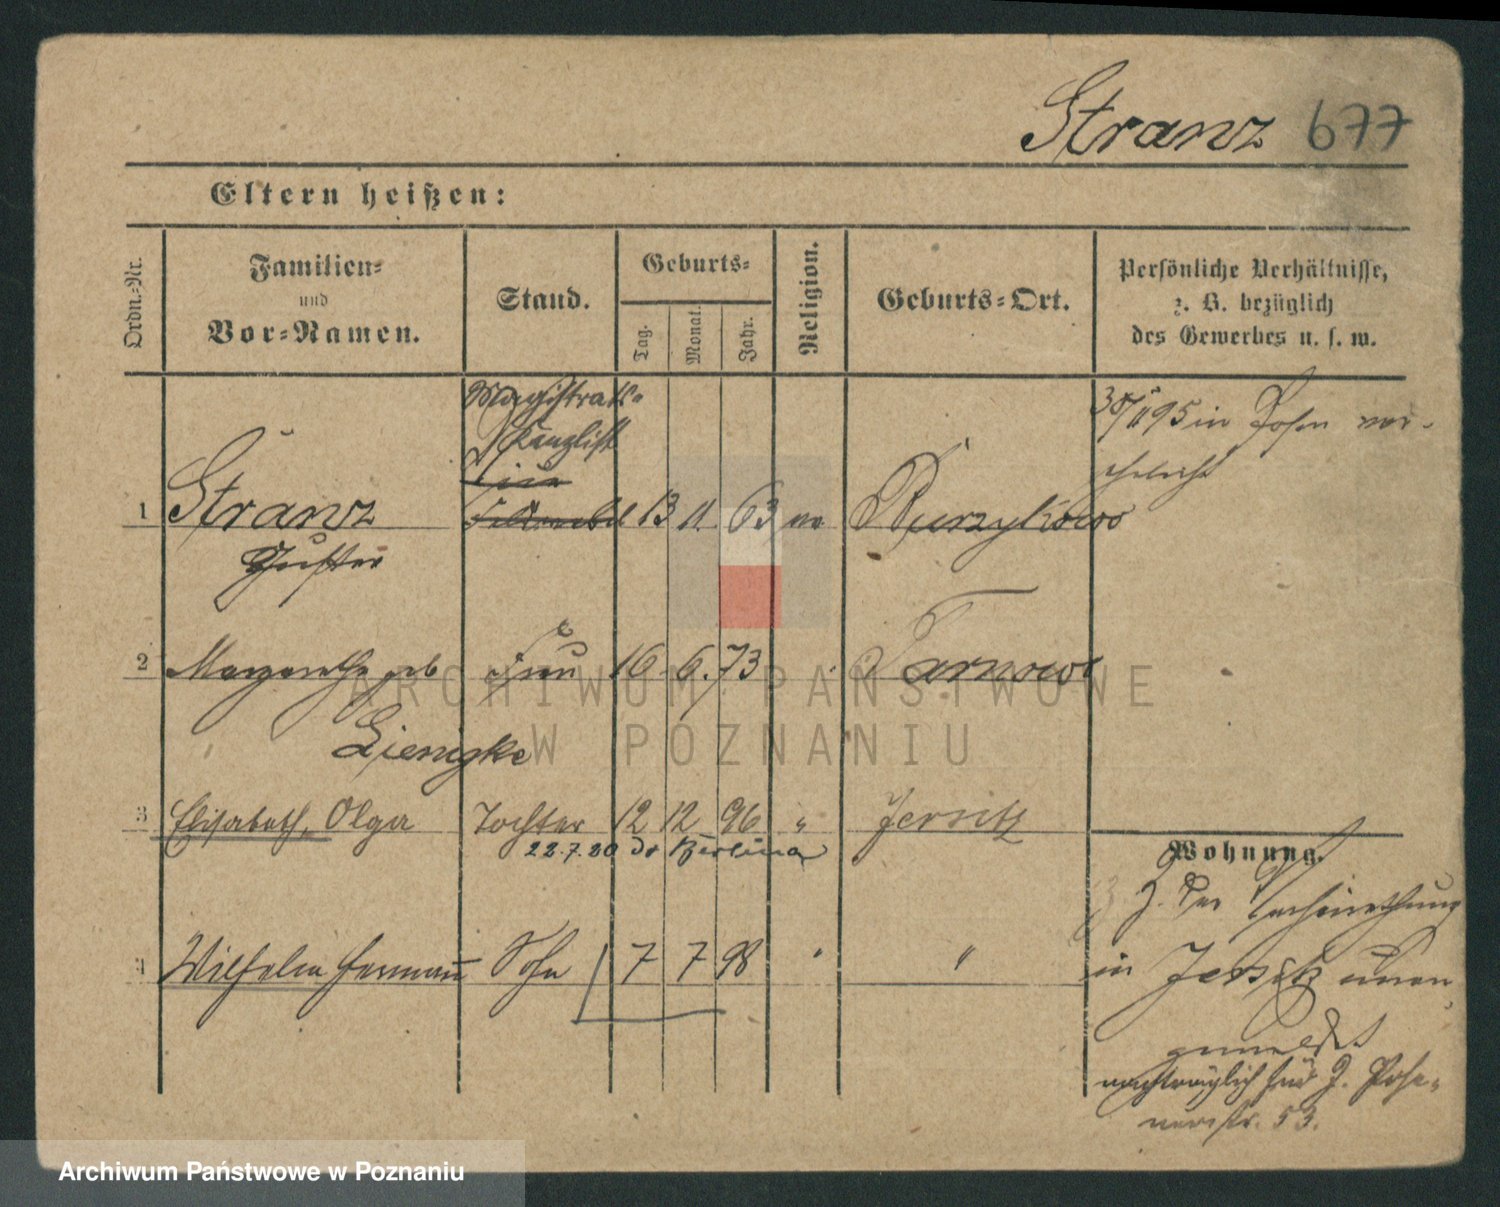 Stranz 677
Eltern heißen:
Ordn.-Nr.
Familien-
und
Vor-Namen.
Stand.
Geburts-
Tag.
Monat.
Jahr.
Religion.
Geburts-Ort.
Persönliche Verhältnisse,
z. B. bezüglich
des Gewerbes u. s. w.
Magistrats-
Kanzlist
1 Stranz Feldwebel 13 11. 63 Burzykowo
Gustav
in Posen ver-
ehelicht
2 Margarethe geb Frau 16 6. 73 Tarnowo
Liemgke
3 Elisabeth, Olga Tochter 12 12 96 " Jersitz
22.7.20 Berlin
4 Wilhelm Hermann Sohn 7 7 98 " "
Wohnung.
Z. der
in Jersitz unan
gemeldet
nachträglich für J. Pose-
nerstr. 53.
ARCHIWUM PAŃSTWOWE
W POZNANIU
Archiwum Państwowe w Poznaniu